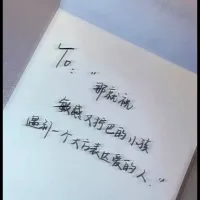 To:"
那就祝
敏感又拧巴的小孩
遇到一个大方表达爱的人."